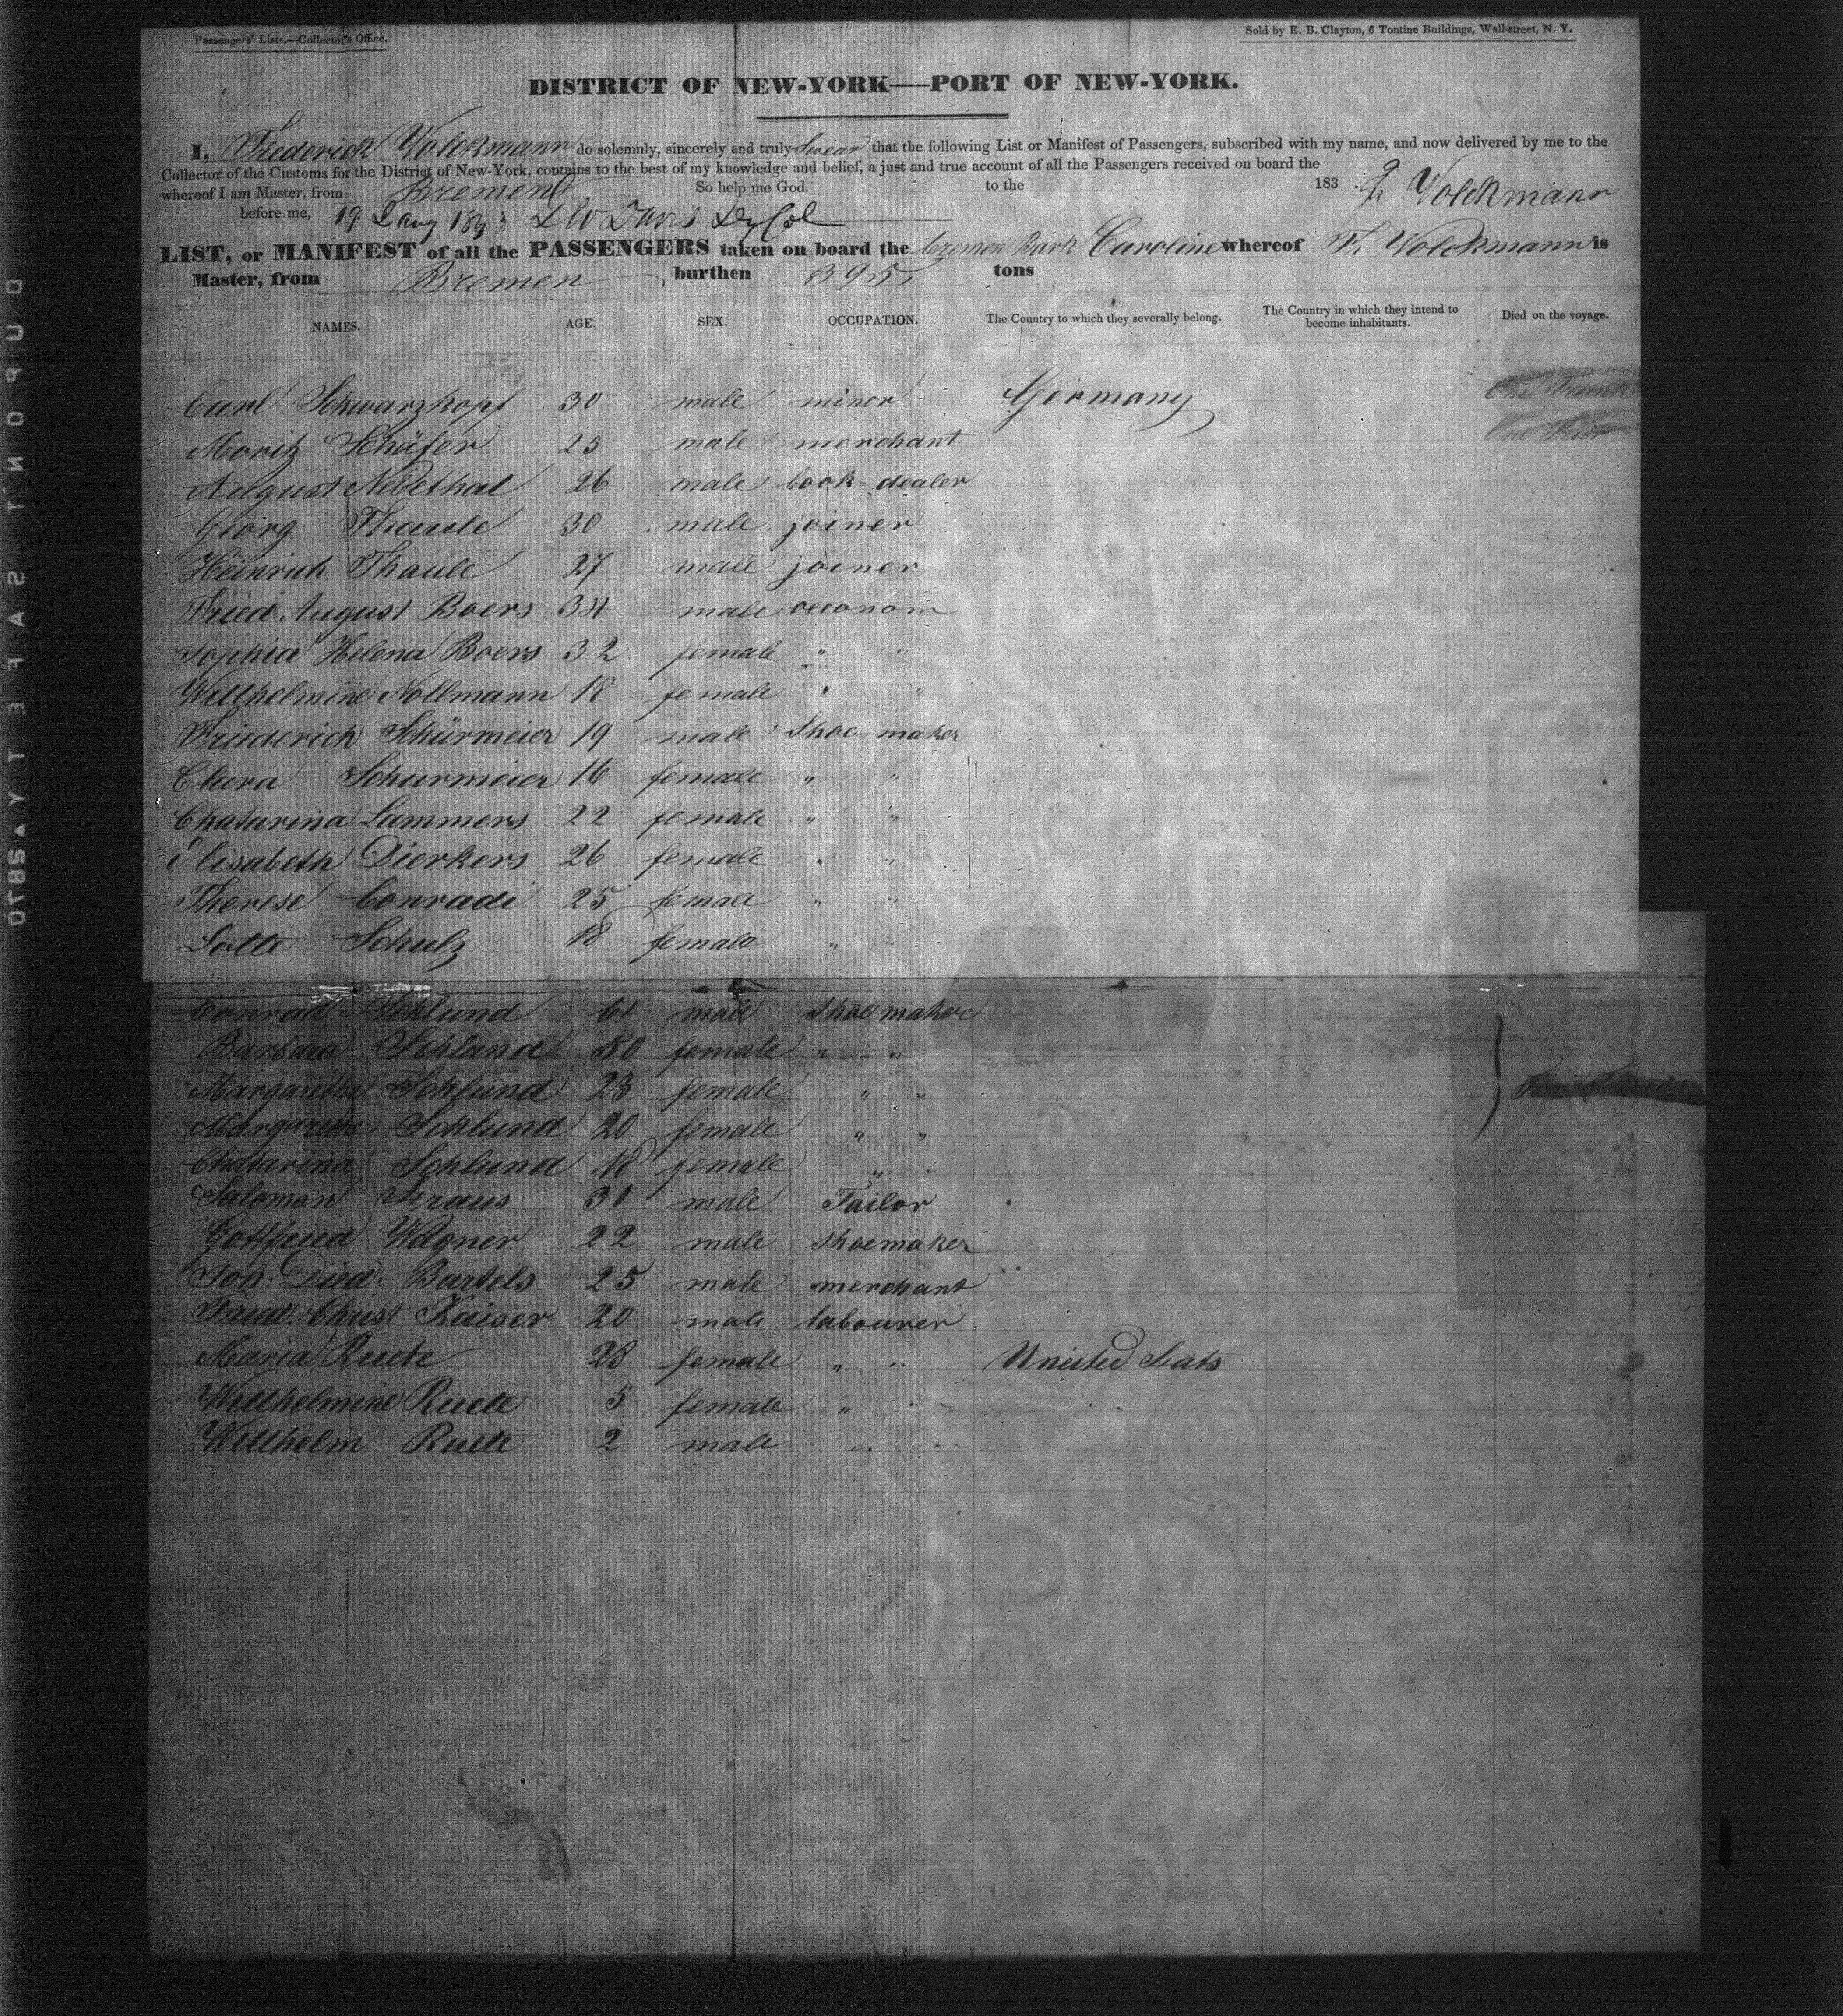 Passengers' Lists.—Collector's Office.
Sold by E. B. Clayton, 6 Tontine Buildings, Wall-street, N. Y.
DISTRICT OF NEW-YORK—PORT OF NEW-YORK.
I, Frederick Volckmann do solemnly, sincerely and truly swear that the following List or Manifest of Passengers, subscribed with my name, and now delivered by me to the
Collector of the Customs for the District of New-York, contains to the best of my knowledge and belief, a just and true account of all the Passengers received on board the
whereof I am Master, from Bremen So help me God. to the 183 F. Volckmann
before me, 19 Davis
LIST, or MANIFEST of all the PASSENGERS taken on board the bremen Bark Caroline whereof F. Volckmann is
Master, from Bremen burthen 395 tons
NAMES. AGE. SEX. OCCUPATION. The Country to which they severally belong. The Country in which they intend to become inhabitants. Died on the voyage.
Carl Schwarzkopf 30 male miner Germany
Moritz Schäfer 23 male merchant
August Nebethal 26 male book-dealer
Georg Thaule 30 male joiner
Heinrich Thaule 27 male joiner
Fried. August Boers 34 male oeconom
Sophia Helena Boers 32 female " "
Willhelmine Nollmann 18 female " "
Friederich Schürmeier 19 male Shoe maker
Clara Schurmeier 16 female " "
Chatarina Lammers 22 female " "
Elisabeth Dierkers 26 female " "
Therese Conradi 25 female " "
Lotte Schulz 18 female " "
Conrad Schlund 61 male shoe maker
Barbara Schlund 50 female " "
Margarethe Schlund 23 female " "
Margarethe Schlund 20 female " "
Chatarina Schlund 18 female " "
Salomon Straus 31 male Tailor
Gottfried Wagner 22 male shoemaker
Joh: Died: Bartels 25 male merchant
Fried. Christ Kaiser 20 male labourer
Maria Ruete 28 female " " Uniited Stats
Willhelmine Ruete 5 female "
Willhelm Ruete 2 male " "
DUPONT SAFETY 0785